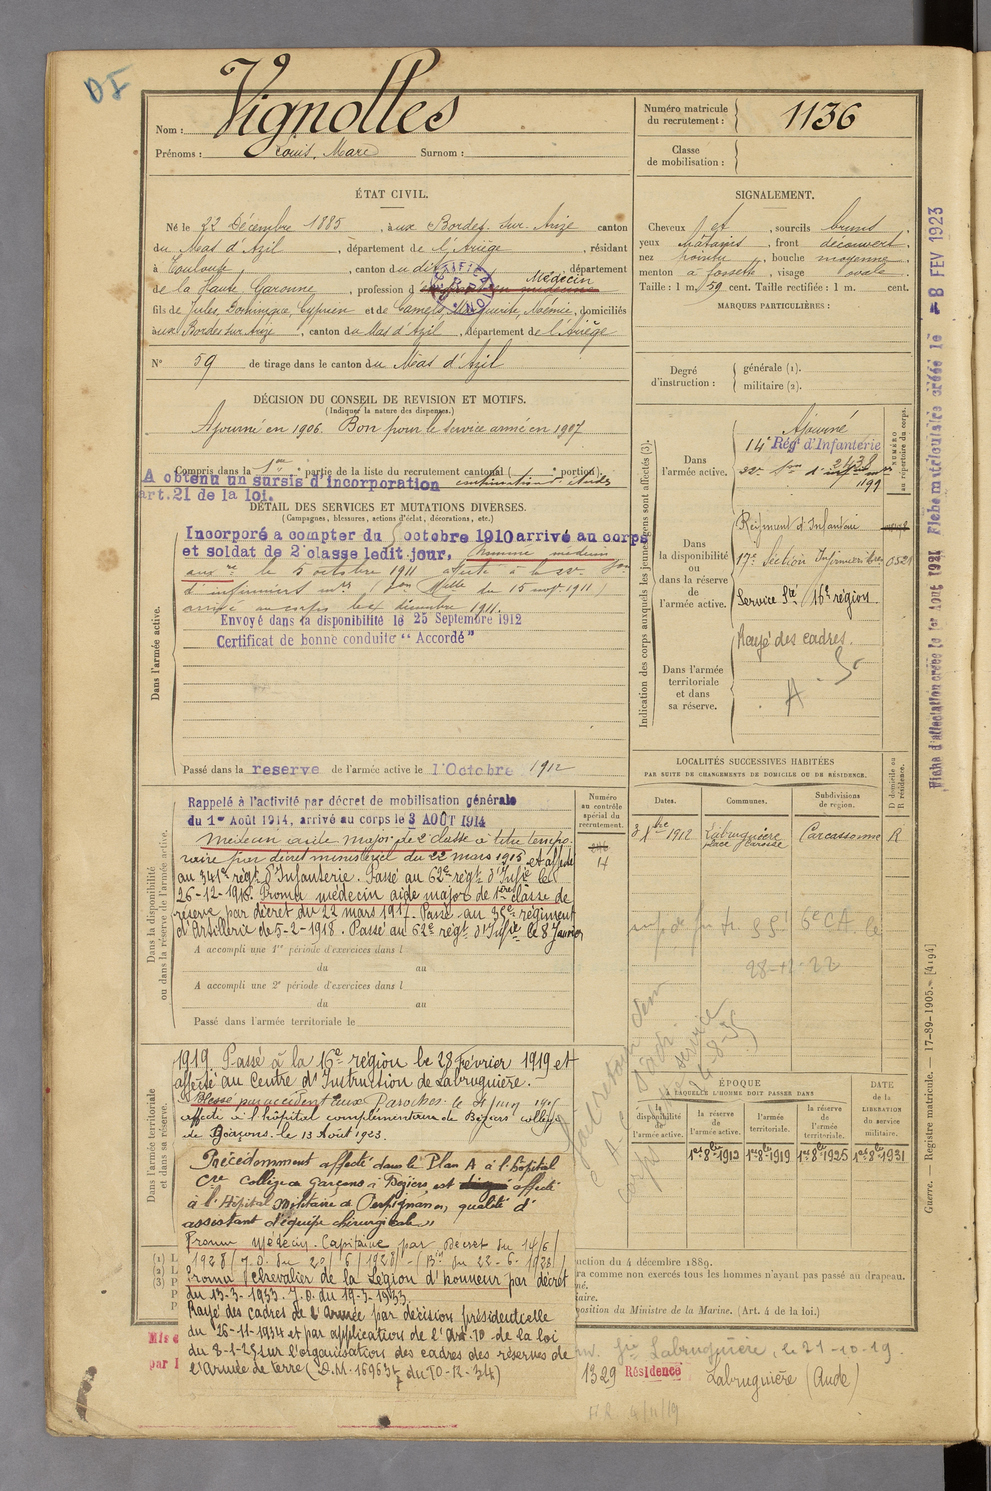 DI
Nom : Vignolles
Prénoms : Louis, Marc Surnom :
Numéro matricule du recrutement : 1136
Classe de mobilisation :
ÉTAT CIVIL.
Né le 22 Décembre 1885, à aux Bordes sur Arize canton
du Mas d'Azil, département de l'Ariège, résidant
à Toulouse, canton du dit, département
de la Haute Garonne, profession d Médecin
RECTIFICATION
fils de Jules, Dominique, Cyprien et de Marguerite, Noémie, domiciliés
à aux Bordes sur Arize, canton du Mas d'Azil, département de l'Ariège
N° 59 de tirage dans le canton du Mas d'Azil
SIGNALEMENT.
Cheveux et, sourcils bruns
yeux châtains, front découvert
nez pointu, bouche moyenne
menton à fossette, visage ovale
Taille : 1 m. 59 cent. Taille rectifiée : 1 m. cent.
MARQUES PARTICULIÈRES :
Degré d'instruction :
générale (1).
militaire (2).
DÉCISION DU CONSEIL DE REVISION ET MOTIFS.
(Indiquer la nature des dispenses.)
Ajourné en 1906. Bon pour le service armé en 1907
Compris dans la 1re partie de la liste du recrutement cantonal ( portion).
A obtenu un sursis d'incorporation
art. 21 de la loi.
DÉTAIL DES SERVICES ET MUTATIONS DIVERSES.
(Campagnes, blessures, actions d'éclat, décorations, etc.)
Dans l'armée active.
Incorporé a compter du octobre 1910 arrivé au corps
et soldat de 2e classe ledit jour. Nommé médecin
auxre le 5 octobre 1911 affecté à la 22e
d'infirmiers mres
arrivé au corps le décembre 1911.
Envoyé dans la disponibilité le 25 Septembre 1912
Certificat de bonne conduite "Accordé"
Passé dans la reserve de l'armée active le 1 Octobre 1912
Indication des corps auxquels les jeunes gens sont affectés (3).
NUMÉRO au répertoire du corps.
Dans l'armée active.
Ajourné
14e Régt d'Infanterie
1199
Dans la disponibilité ou dans la réserve de l'armée active.
Régiment d'Infanterie
17e Section Infirmiers 0521
Service Sté 16e région
Dans l'armée territoriale et dans sa réserve.
Rayé des cadres
A
Fiche d'affectation créée le 1er Août 1921 Fiche matriculaire créée le -8 FEV 1923
Dans la disponibilité ou dans la réserve de l'armée active.
Rappelé à l'activité par décret de mobilisation générale
du 1er Août 1914, arrivé au corps le 3 AOÛT 1914
Médecin aide major de 2e classe à titre tempo
raire par décret ministériel du 22 mars 1915 et affecté
au 341e régt d'Infanterie. Passé au 62e régt d'Infie le
26-12-1916. Promu médecin aide major de 1ère classe de
réserve par décret du 22 mars 1917. Passé au 35e régiment
d'Artillerie le 5-2-1918. Passé au 62e régt d'Infie le 8 Janvier
A accompli une 1re période d'exercices dans l
du au
A accompli une 2e période d'exercices dans l
du au
Passé dans l'armée territoriale le
Numéro au contrôle spécial du recrutement.
14
LOCALITÉS SUCCESSIVES HABITÉES
PAR SUITE DE CHANGEMENTS DE DOMICILE OU DE RÉSIDENCE.
Dates. Communes. Subdivisions de région. D domicile ou R résidence.
3 1912 Labruguière Carcassonne R
6e CA. le
28-11-22
Dans l'armée territoriale et dans sa réserve.
1919. Passé à la 16e région le 28 Février 1919 et
affecté au Centre d'Instruction de Labruguière.
Blessé par accident aux Paroches le
affecté à l'hôpital complémentaire de Béziers collège
de Garçons le 13 Août 1923.
Précédemment affecté dans le Plan A à l'hôpital
Cre collège garçons à Béziers est affecté
à l'Hôpital Militaire de Perpignan en qualité d'
assistant d'équipe chirurgicale
Promu Médecin-Capitaine par Décret du 14/6/
1928 (J.O. du 20/6/1928)
Promu Chevalier de la Légion d'honneur par décret
du 15-3-1933. J.O. du 19-3-1933.
Rayé des cadres de l'Armée par décision présidentielle
du 26-11-1934 et par application de l'Art. 10 de la loi
du 8-1-25 sur l'organisation des cadres des réserves de
l'Armée de terre (D.M. 169637 du 10-12-34)
ÉPOQUE
À LAQUELLE L'HOMME DOIT PASSER DANS
la disponibilité de l'armée active. la réserve de l'armée active. l'armée territoriale. la réserve de l'armée territoriale.
DATE DE LA LIBÉRATION DU SERVICE MILITAIRE.
1er 8bre 1912 1er 8bre 1919 1er 8bre 1925 1er 8bre 1931
nction du 4 décembre 1889.
ra comme non exercés tous les hommes n'ayant pas passé au drapeau.
né.
iaire.
position du Ministre de la Marine. (Art. 4 de la loi.)
Guerre. — Registre matricule. — 17-89-1905. [4194]
Mis e
par l
Labruguière, le 21-10-19.
1329 Résidence Labruguière (Aude)
4/11/19